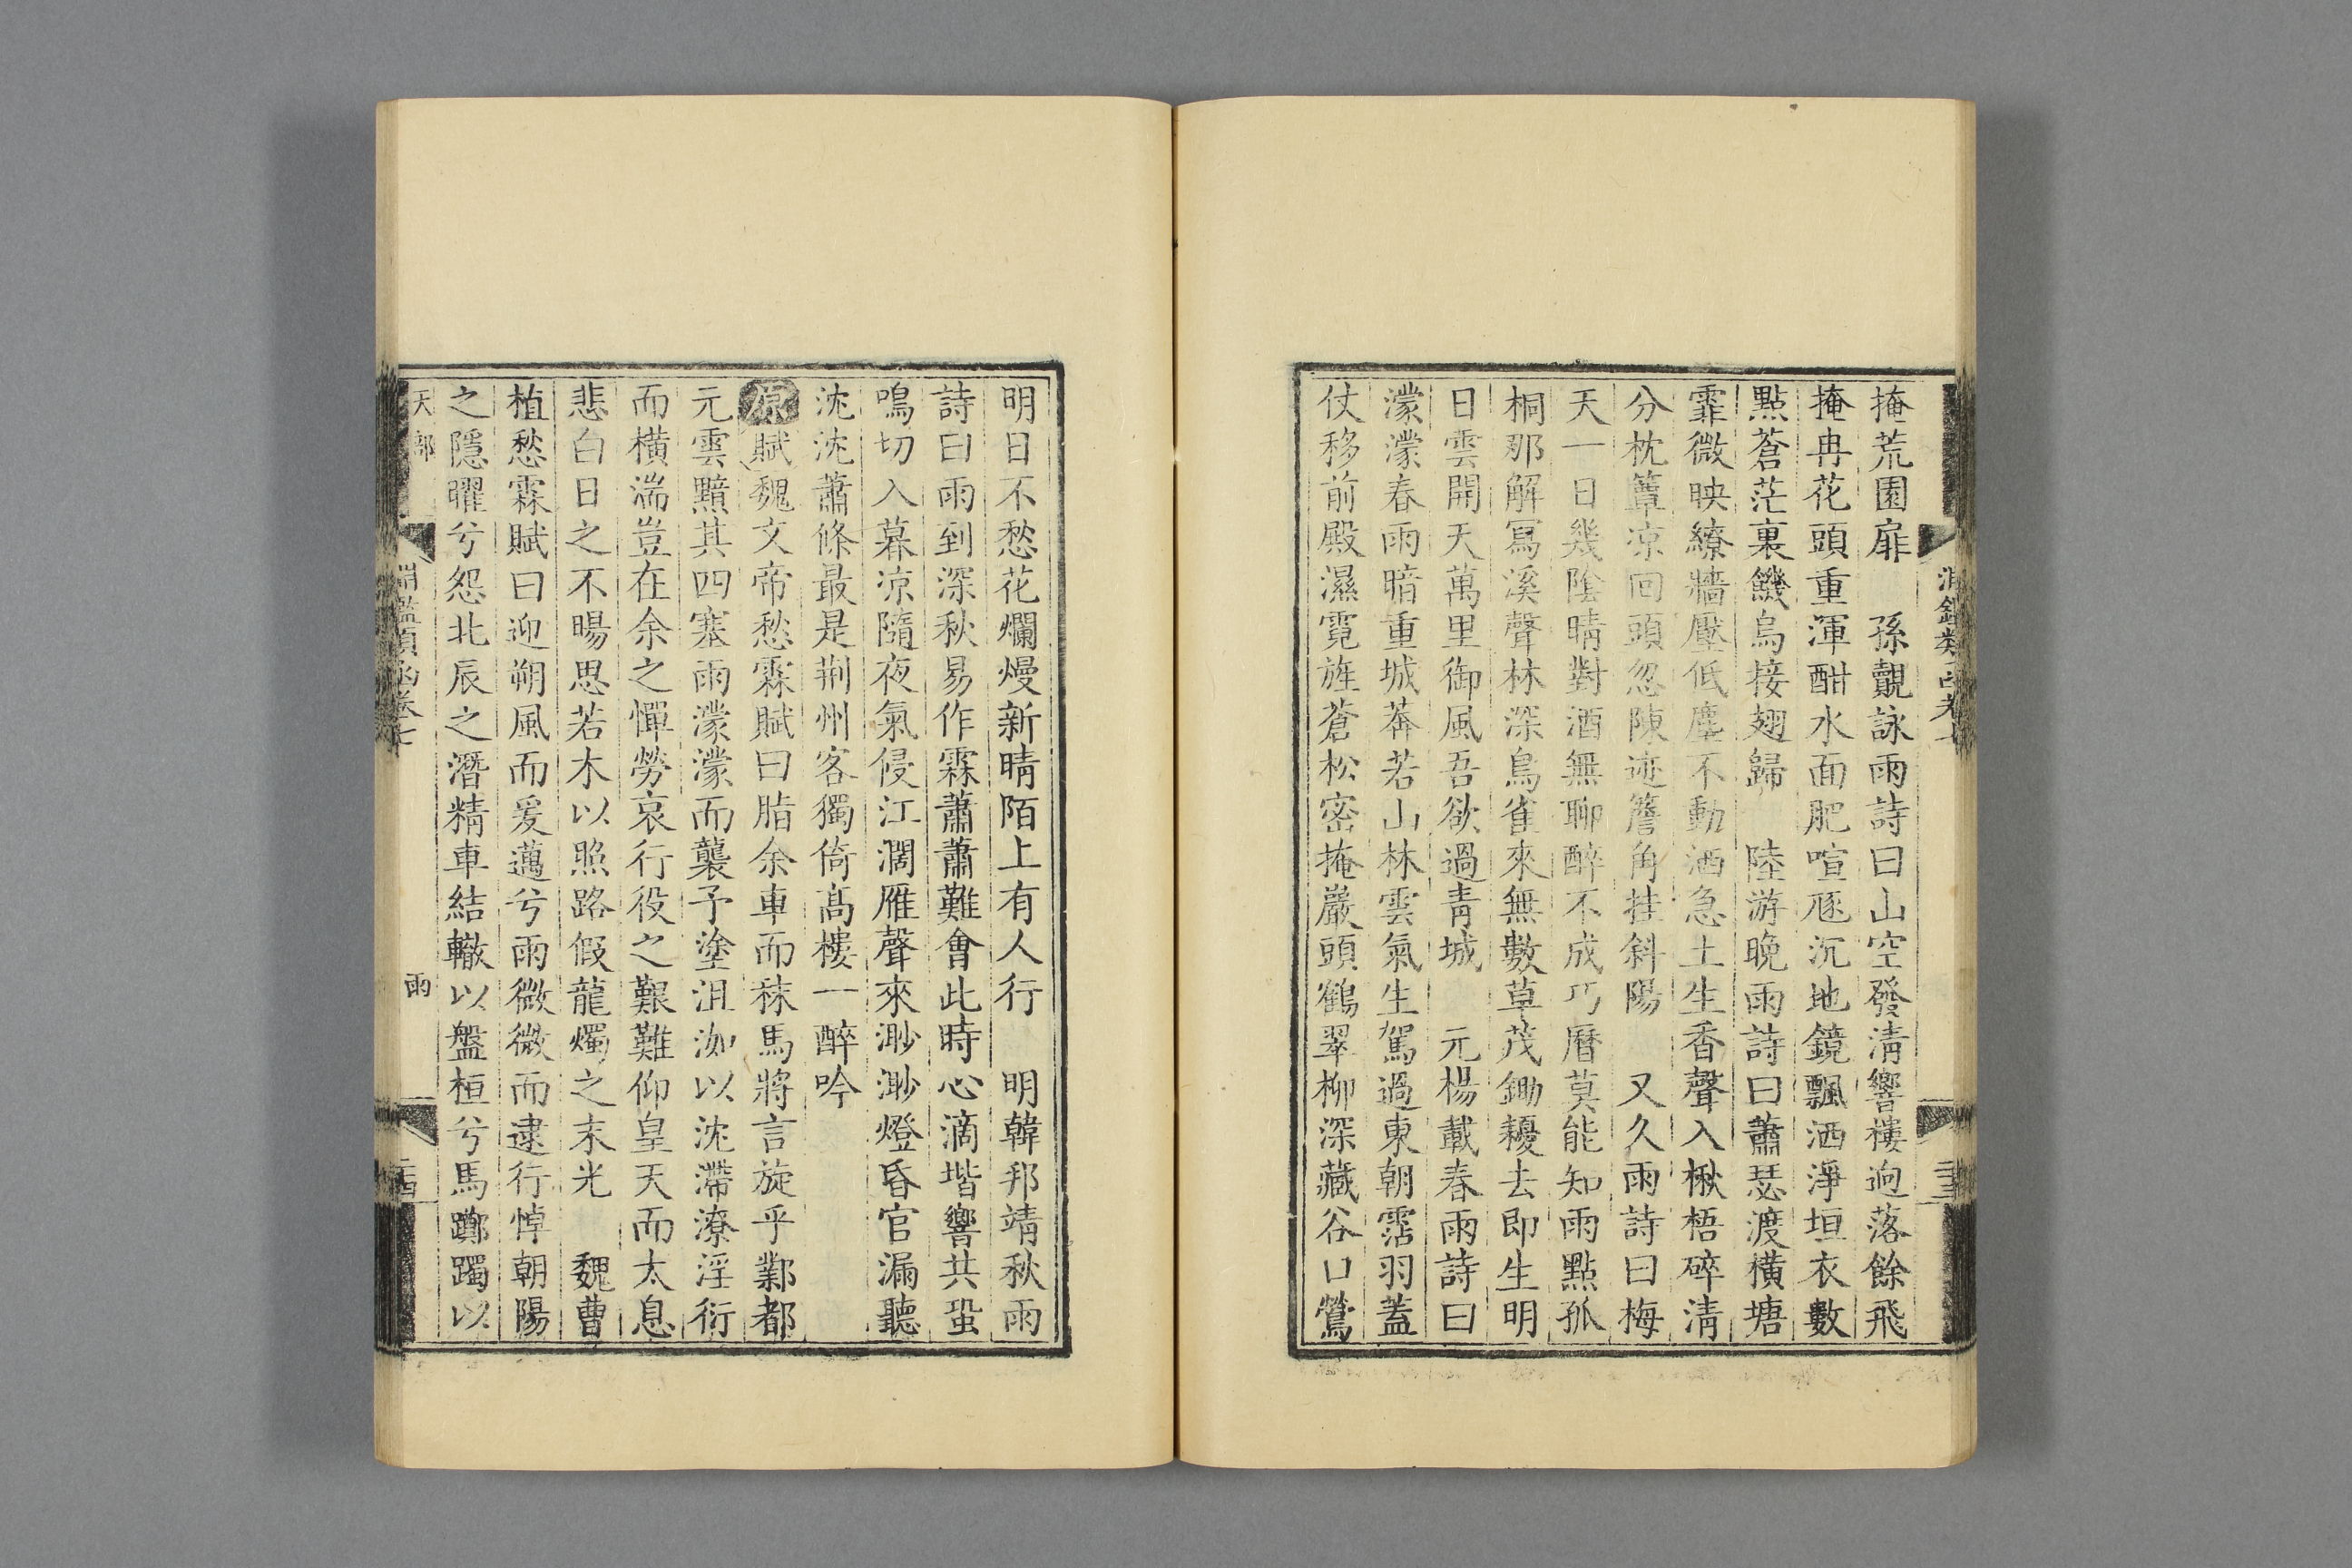 掩荒園扉　孫覿詠雨詩曰山空發清響樓逈落餘飛
掩冉花頭重渾酣水面肥喧豗沉地鏡飄洒淨垣衣數
點蒼茫裏饑烏接翅歸　陸游晚雨詩曰蕭瑟渡橫塘
霏微映繚牆壓低塵不動洒急土生香聲入楸梧碎清
分枕簟涼回頭忽陳迹簷角挂斜陽　又久雨詩曰梅
天一日幾陰晴對酒無聊醉不成巧曆莫能知雨點孤
桐那解寫溪聲林深鳥雀來無數草茂鋤耰去即生明
日雲開天萬里御風吾欲過青城　元楊載春雨詩曰
濛濛春雨暗重城莽若山林雲氣生駕過東朝霑羽蓋
仗移前殿濕霓旌蒼松密掩巖頭鶴翠柳深藏谷口鶯
明日不愁花爛熳新晴陌上有人行　明韓邦靖秋雨
詩曰雨到深秋易作霖蕭蕭難會此時心滴堦響共蛩
鳴切入暮凉隨夜氣侵江濶雁聲來渺渺燈昏官漏聽
沈沈蕭條最是荆州客獨倚髙樓一醉吟
原賦魏文帝愁霖賦曰脂余車而秣馬將言旋乎鄴都
元雲黯其四塞雨濛濛而襲予塗沮洳以沈滯潦淫衍
而橫湍豈在余之憚勞哀行役之艱難仰皇天而太息
悲白日之不暘思若木以照路假龍燭之末光　魏曹
植愁霖賦曰迎朔風而爰邁兮雨微微而逮行悼朝陽
之隱曜兮怨北辰之潛精車結轍以盤桓兮馬躑躅以
天部
淵鑑類函卷七
雨